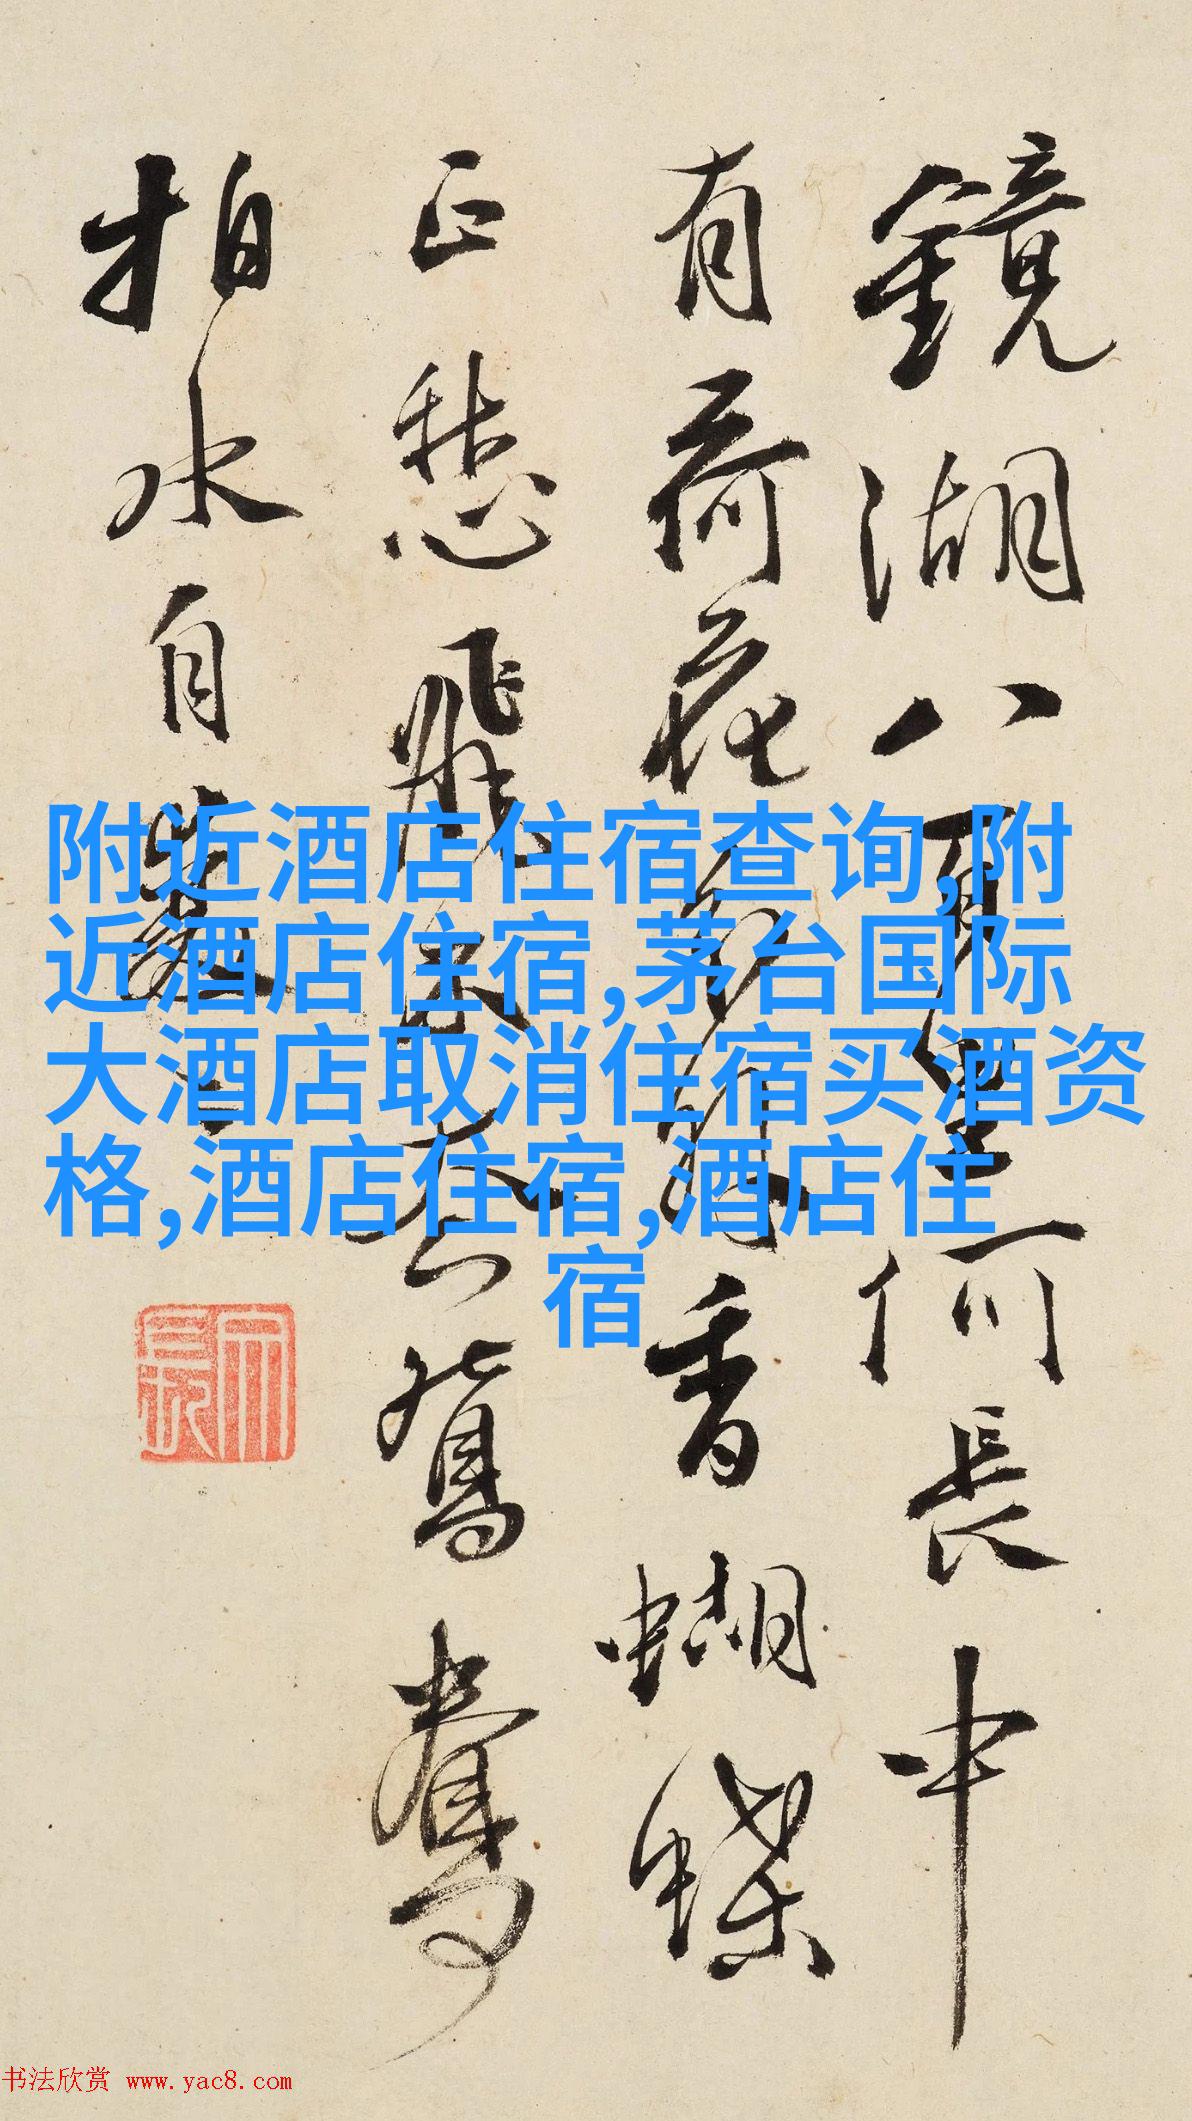 鏡湖八百里何長中
有荷花分外香蝴蝶
正愁飛不去鴛鴦
拍水自雙
附近酒店住宿查询,附
近酒店住宿,茅台国际
大酒店取消住宿买酒资
格,酒店住宿,酒店住
宿
书法欣赏 www.yac8.com